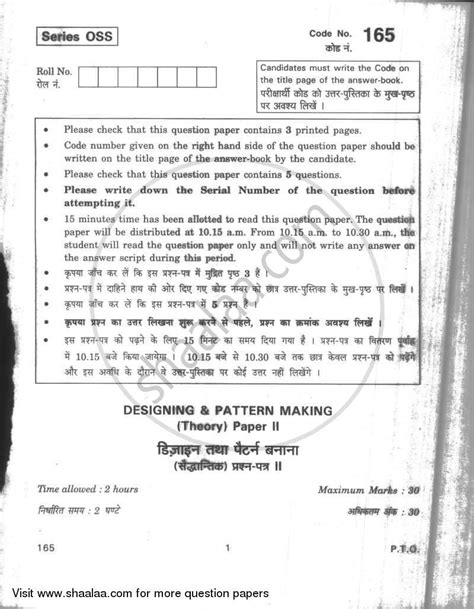 Series OSS
Code No. 165
कोड नं.
Roll No.
रोल नं.
Candidates must write the Code on
the title page of the answer-book.
परीक्षार्थी कोड को उत्तर-पुस्तिका के मुख-पृष्ठ
पर अवश्य लिखें ।
• Please check that this question paper contains 3 printed pages.
• Code number given on the right hand side of the question paper should be
written on the title page of the answer-book by the candidate.
• Please check that this question paper contains 5 questions.
• Please write down the Serial Number of the question before
attempting it.
• 15 minutes time has been allotted to read this question paper. The question
paper will be distributed at 10.15 a.m. From 10.15 a.m. to 10.30 a.m., the
student will read the question paper only and will not write any answer on
the answer script during this period.
• कृपया जाँच कर लें कि इस प्रश्न-पत्र में मुद्रित पृष्ठ 3 हैं ।
• प्रश्न-पत्र में दाहिने हाथ की ओर दिए गए कोड नम्बर को छात्र उत्तर-पुस्तिका के मुख-पृष्ठ पर लिखें ।
• कृपया जाँच कर लें कि इस प्रश्न-पत्र में 5 प्रश्न हैं ।
• कृपया प्रश्न का उत्तर लिखना शुरू करने से पहले, प्रश्न का क्रमांक अवश्य लिखें ।
• इस प्रश्न-पत्र को पढ़ने के लिए 15 मिनट का समय दिया गया है । प्रश्न-पत्र का वितरण पूर्वाह्न
में 10.15 बजे किया जायेगा । 10.15 बजे से 10.30 बजे तक छात्र केवल प्रश्न-पत्र को पढ़ेंगे
और इस अवधि के दौरान वे उत्तर-पुस्तिका पर कोई उत्तर नहीं लिखेंगे ।
shaalaa.com
DESIGNING & PATTERN MAKING
(Theory) Paper II
डिज़ाइन तथा पैटर्न बनाना
(सैद्धान्तिक) प्रश्न-पत्र II
Time allowed : 2 hours
Maximum Marks : 30
निर्धारित समय : 2 घण्टे
अधिकतम अंक : 30
165
1
P.T.O.
Visit www.shaalaa.com for more question papers